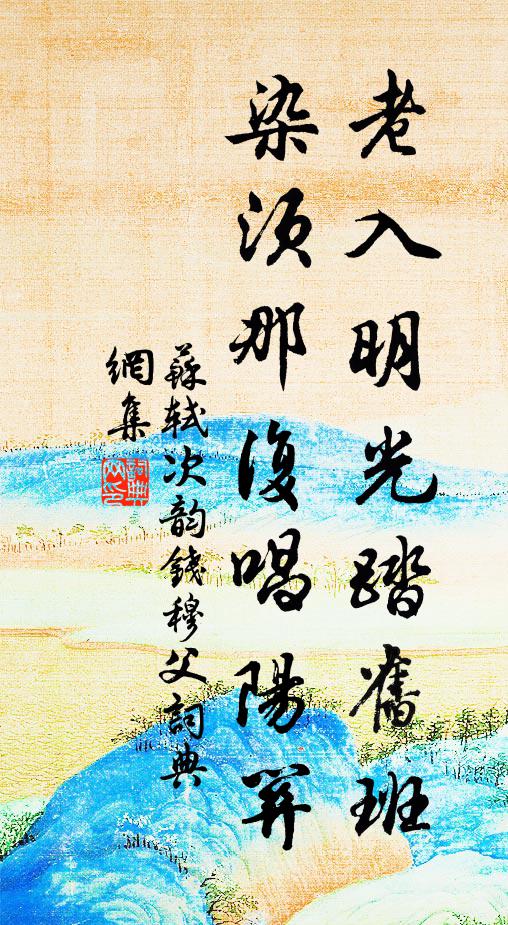 老入明光踏舊班
染須那復唱陽關
蘇軾次韵錢穆父詞典
網集
詞典